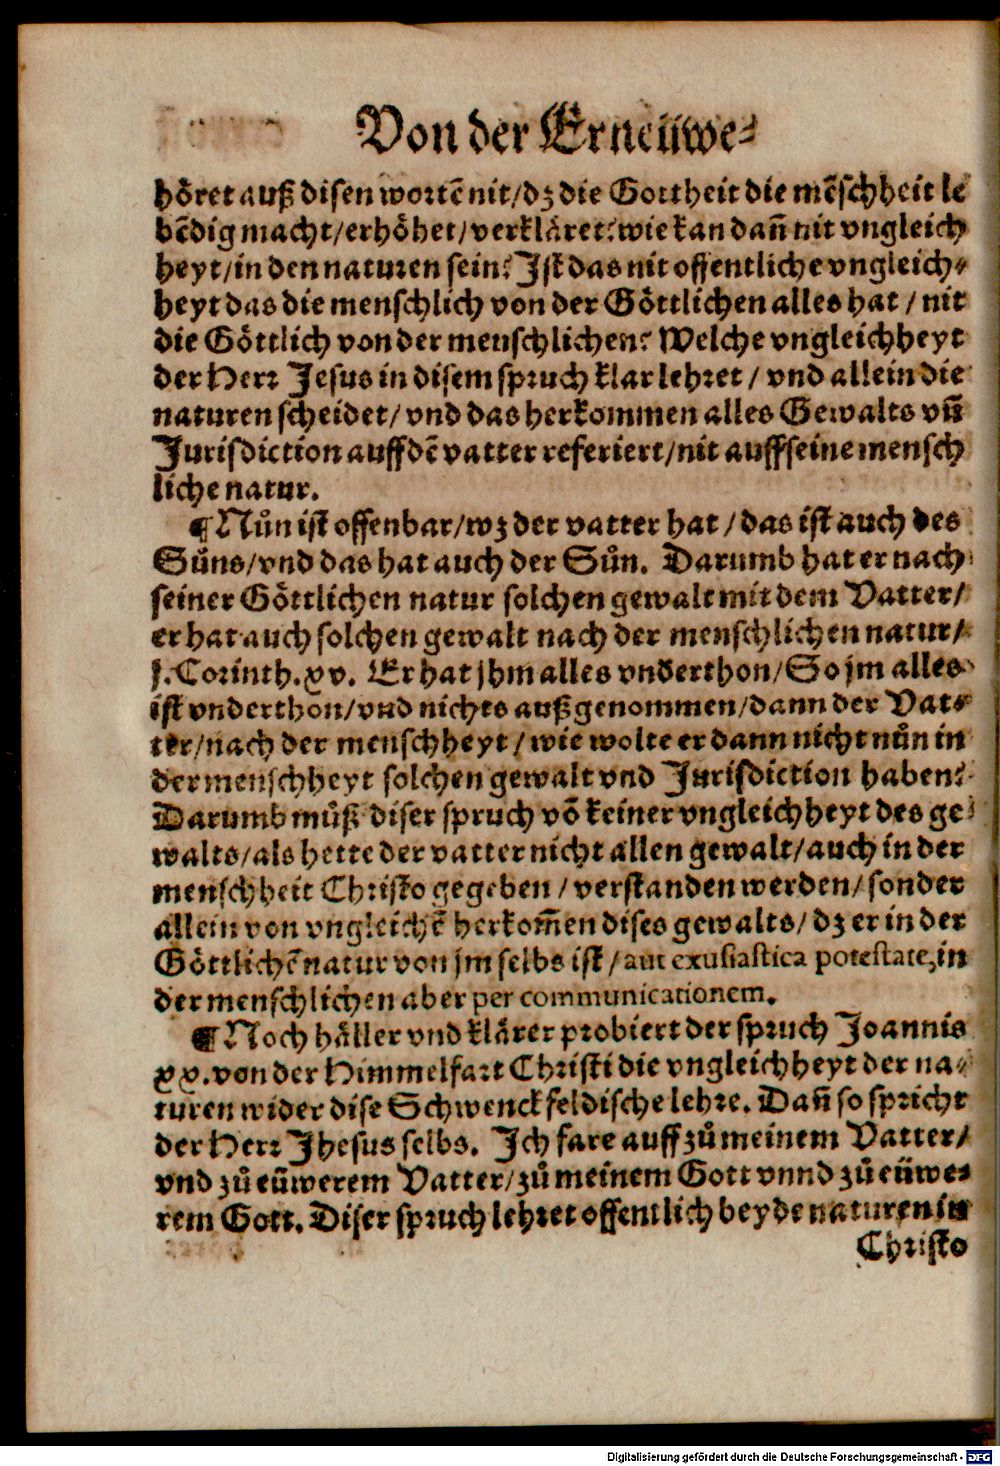 Von der Erneüwe-
höret auß disen wortē nit/dz die Gottheit die mēschheit le
bēdig macht/erhöhet/verkläret? wie kan dañ nit vngleich
heyt/in den naturen sein? Ist das nit offentliche vngleich-
heyt das die menschlich von der Göttlichen alles hat / nit
die Göttlich von der menschlichen? Welche vngleichheyt
der Herr Jesus in disem spruch klar lehret / vnd allein die
naturen scheidet/ vnd das herkommen alles Gewalts vñ
Jurisdiction auff dē vatter referiert/nit auff seine mensch
liche natur.
¶ Nůn ist offenbar/wz der vatter hat / das ist auch des
Sůns/vnd das hat auch der Sůn. Darumb hat er nach
seiner Göttlichen natur solchen gewalt mit dem Vatter/
er hat auch solchen gewalt nach der menschlichen natur/
j. Corinth. xv. Er hat jhm alles vnderthon/ So jm alles
ist vnderthon/vnd nichts außgenommen/dann der Vat-
ter/nach der menschheyt / wie wolte er dann nicht nůn in
der menschheyt solchen gewalt vnd Jurisdiction haben?
Darumb můß diser spruch vō keiner vngleichheyt des ge-
walts/als hette der vatter nicht allen gewalt/auch in der
menschheit Christo gegeben / verstanden werden/ sonder
allein von vngleichē herkom̄en dises gewalts/ dz er in der
Göttlichē natur von jm selbs ist / aut exusiastica potestate, in
der menschlichen aber per communicationem.
¶ Noch häller vnd klärer probiert der spruch Joannis
xx. von der Himmelfart Christi die vngleichheyt der na-
turen wider dise Schwenckfeldische lehre. Dañ so spricht
der Herr Jhesus selbs. Ich fare auff zů meinem Vatter/
vnd zů eüwerem Vatter/zů meinem Gott vnnd zů eüwe-
rem Gott. Diser spruch lehret offentlich beyde naturen in
Christo
Digitalisierung gefördert durch die Deutsche Forschungsgemeinschaft - DFG